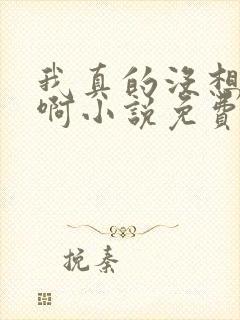 我真的没想
啊小说免费
挽秦